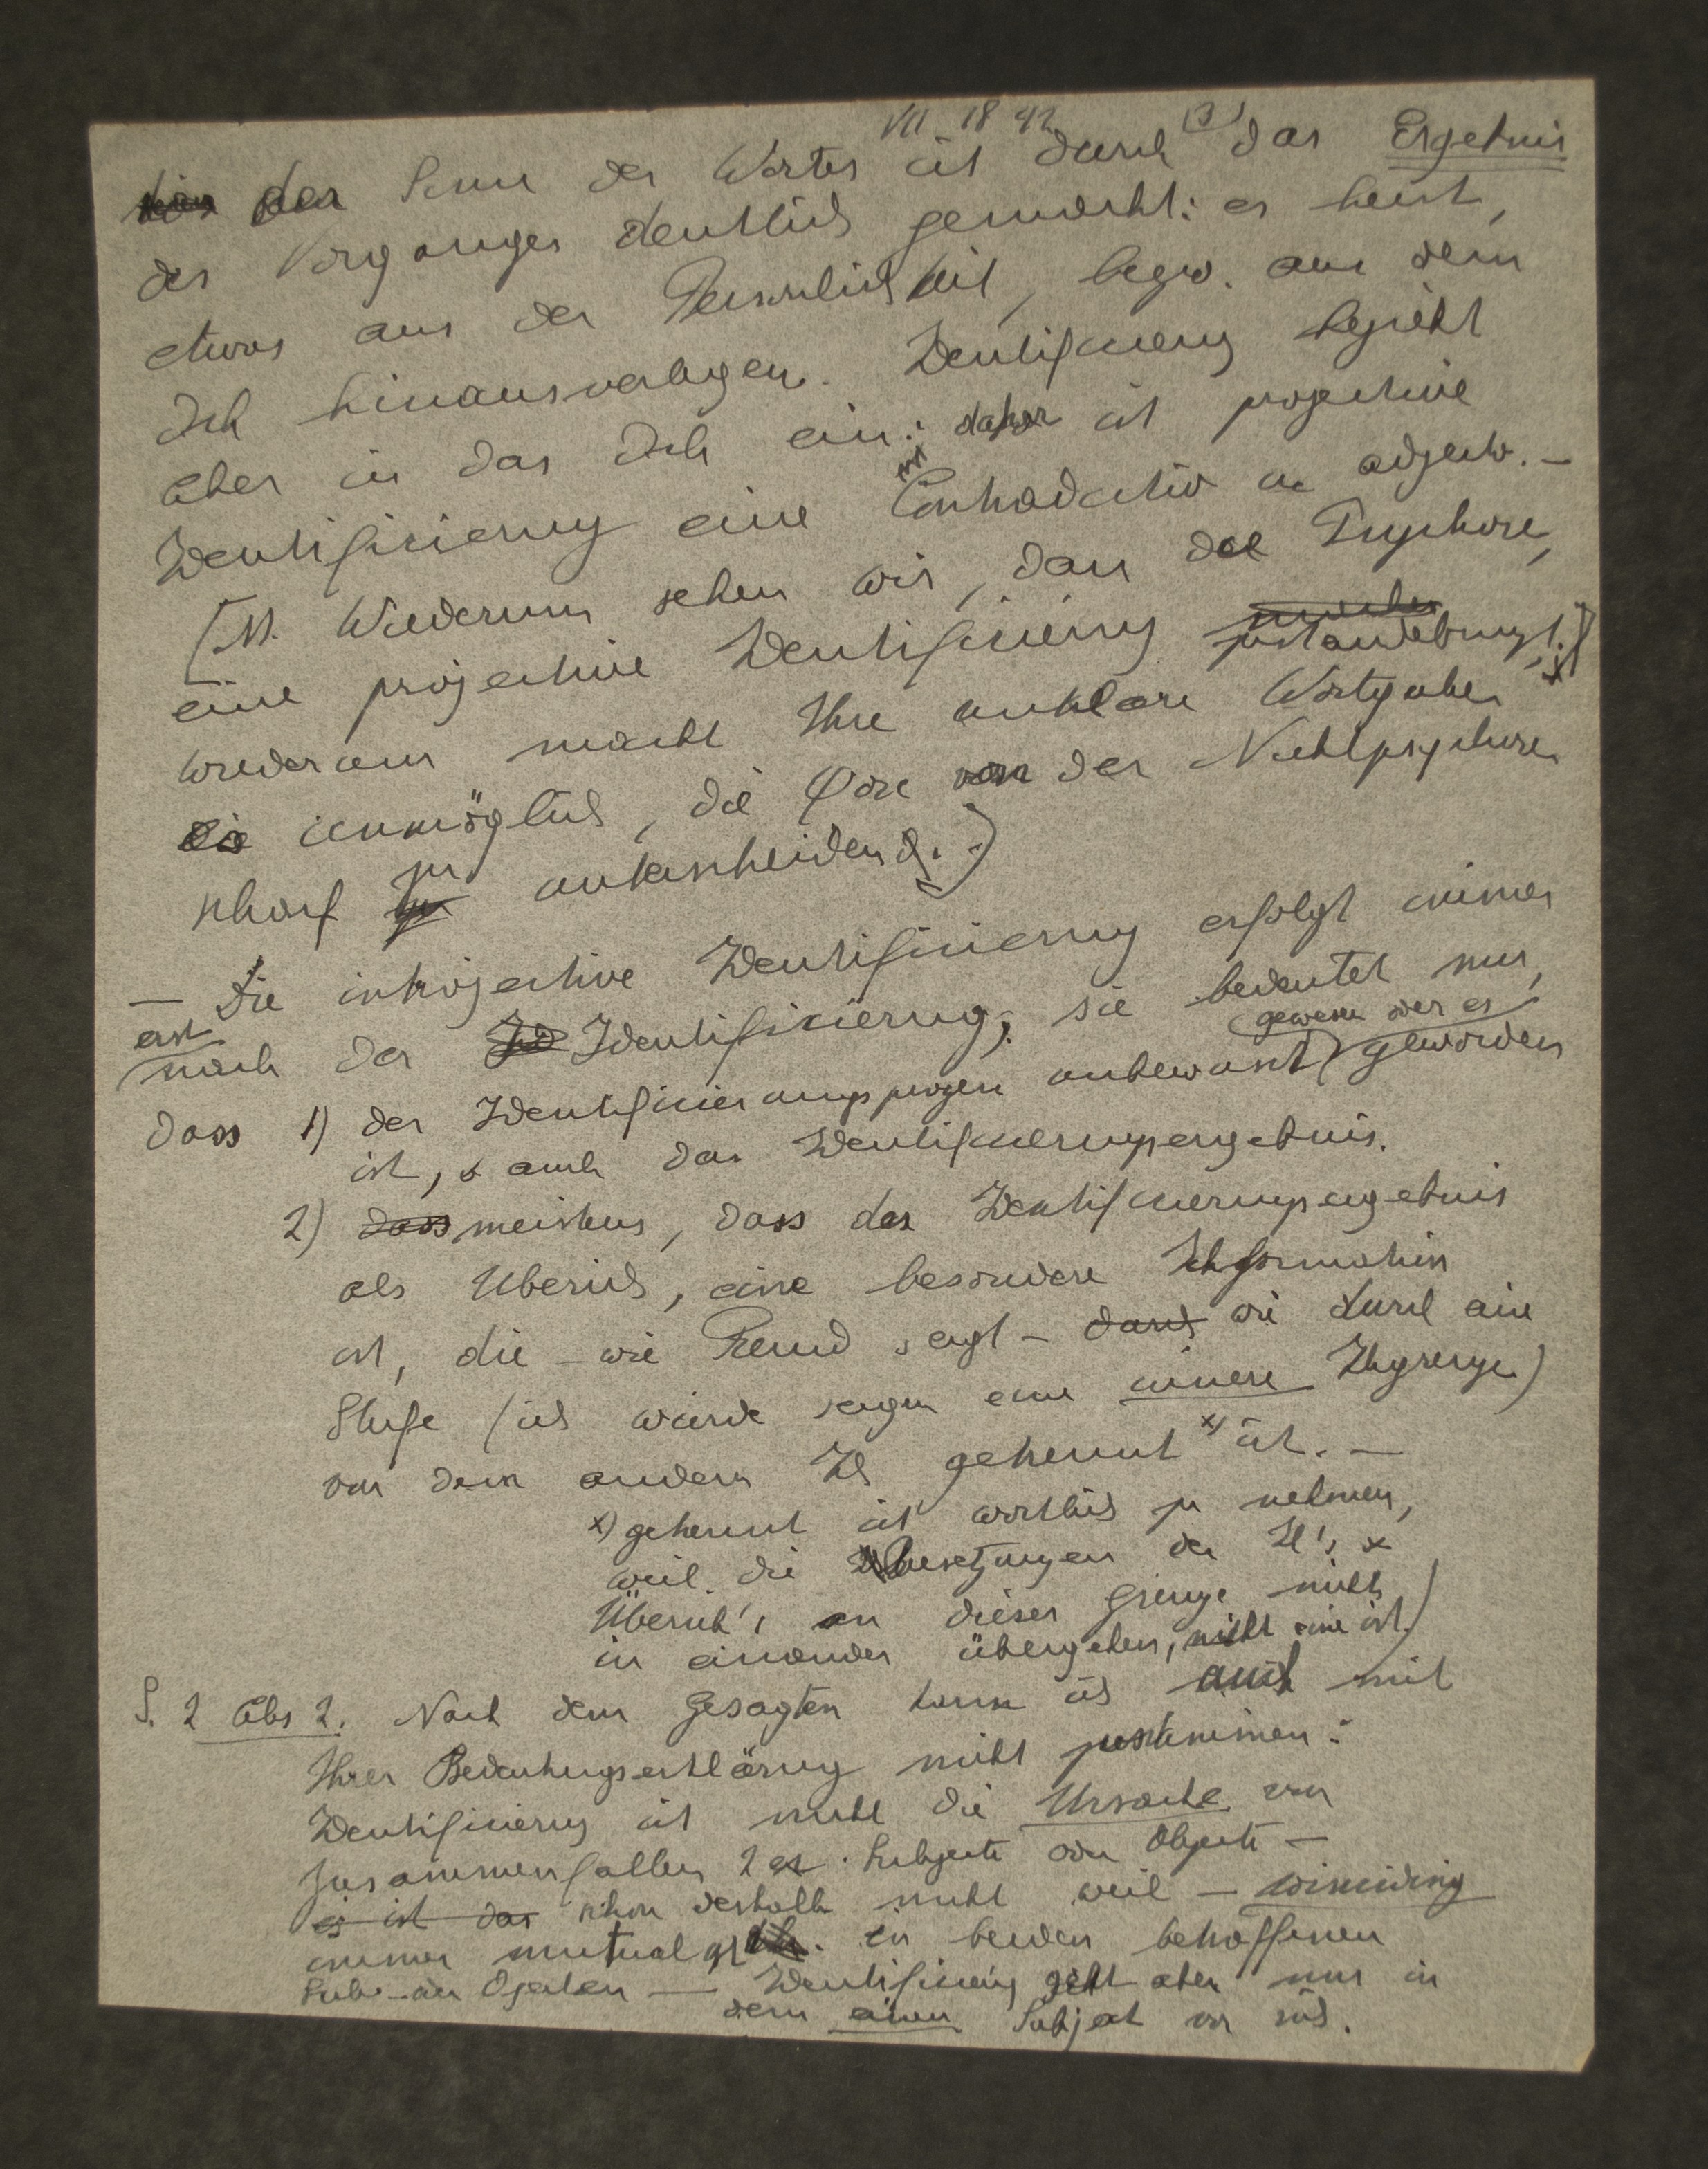 VII 18 42 (3)
der Sinn des Wortes ist durch das Ergebnis
des Vorganges deutlich gemacht: es heisst,
etwas aus der Persönlichkeit, bezw. aus dem
Ich hinausverlegen. Identifizierung bezieht
aber in das Ich ein: daher ist projective
Identifizierung eine Contradictio in adjecto. –
(N. Wiederum sehen wir, dass die Psychose,
eine projective Identifizierung zustandebringt;
wiederum macht Ihre unklare Wortgabe
unmöglich, die von der Nichtpsychose
scharf zu unterscheiden.)
– Die introjective Identifizierung erfolgt immer
erst
nach der Identifizierung; sie bedeutet nur,
gewesen oder es
dass 1) der Identifizierungsprozess unbewusst geworden
ist, & auch das Identifizierungsergebnis.
2) dass meistens, dass das Identifizierungsergebnis
als Überich, eine besondere Ichformation
ist, die – wie Freud sagt – wie durch eine
Stufe (ich würde sagen eine innere Ichgrenze)
von dem andern Ich getrennt x) ist. –
x) getrennt ist wörtlich zu nehmen,
weil die Besetzungen des Ich's &
Überich's an dieser Grenze nicht
in einander übergehen, nicht eine ist.)
S. 2 Abs 2. Nach dem Gesagten kann ich auch mit
Ihrer Bedeutungserklärung nicht zustimmen:
Identifizierung ist nicht die Ursache von
Zusammenfallen 2er Subjecte oder Objecte –
es ist das schon deshalb nicht weil –
immer mutual ist in beiden betroffenen
Sub- oder Objecten – Identifizierung geht aber nur in
dem einen Subject vor sich.